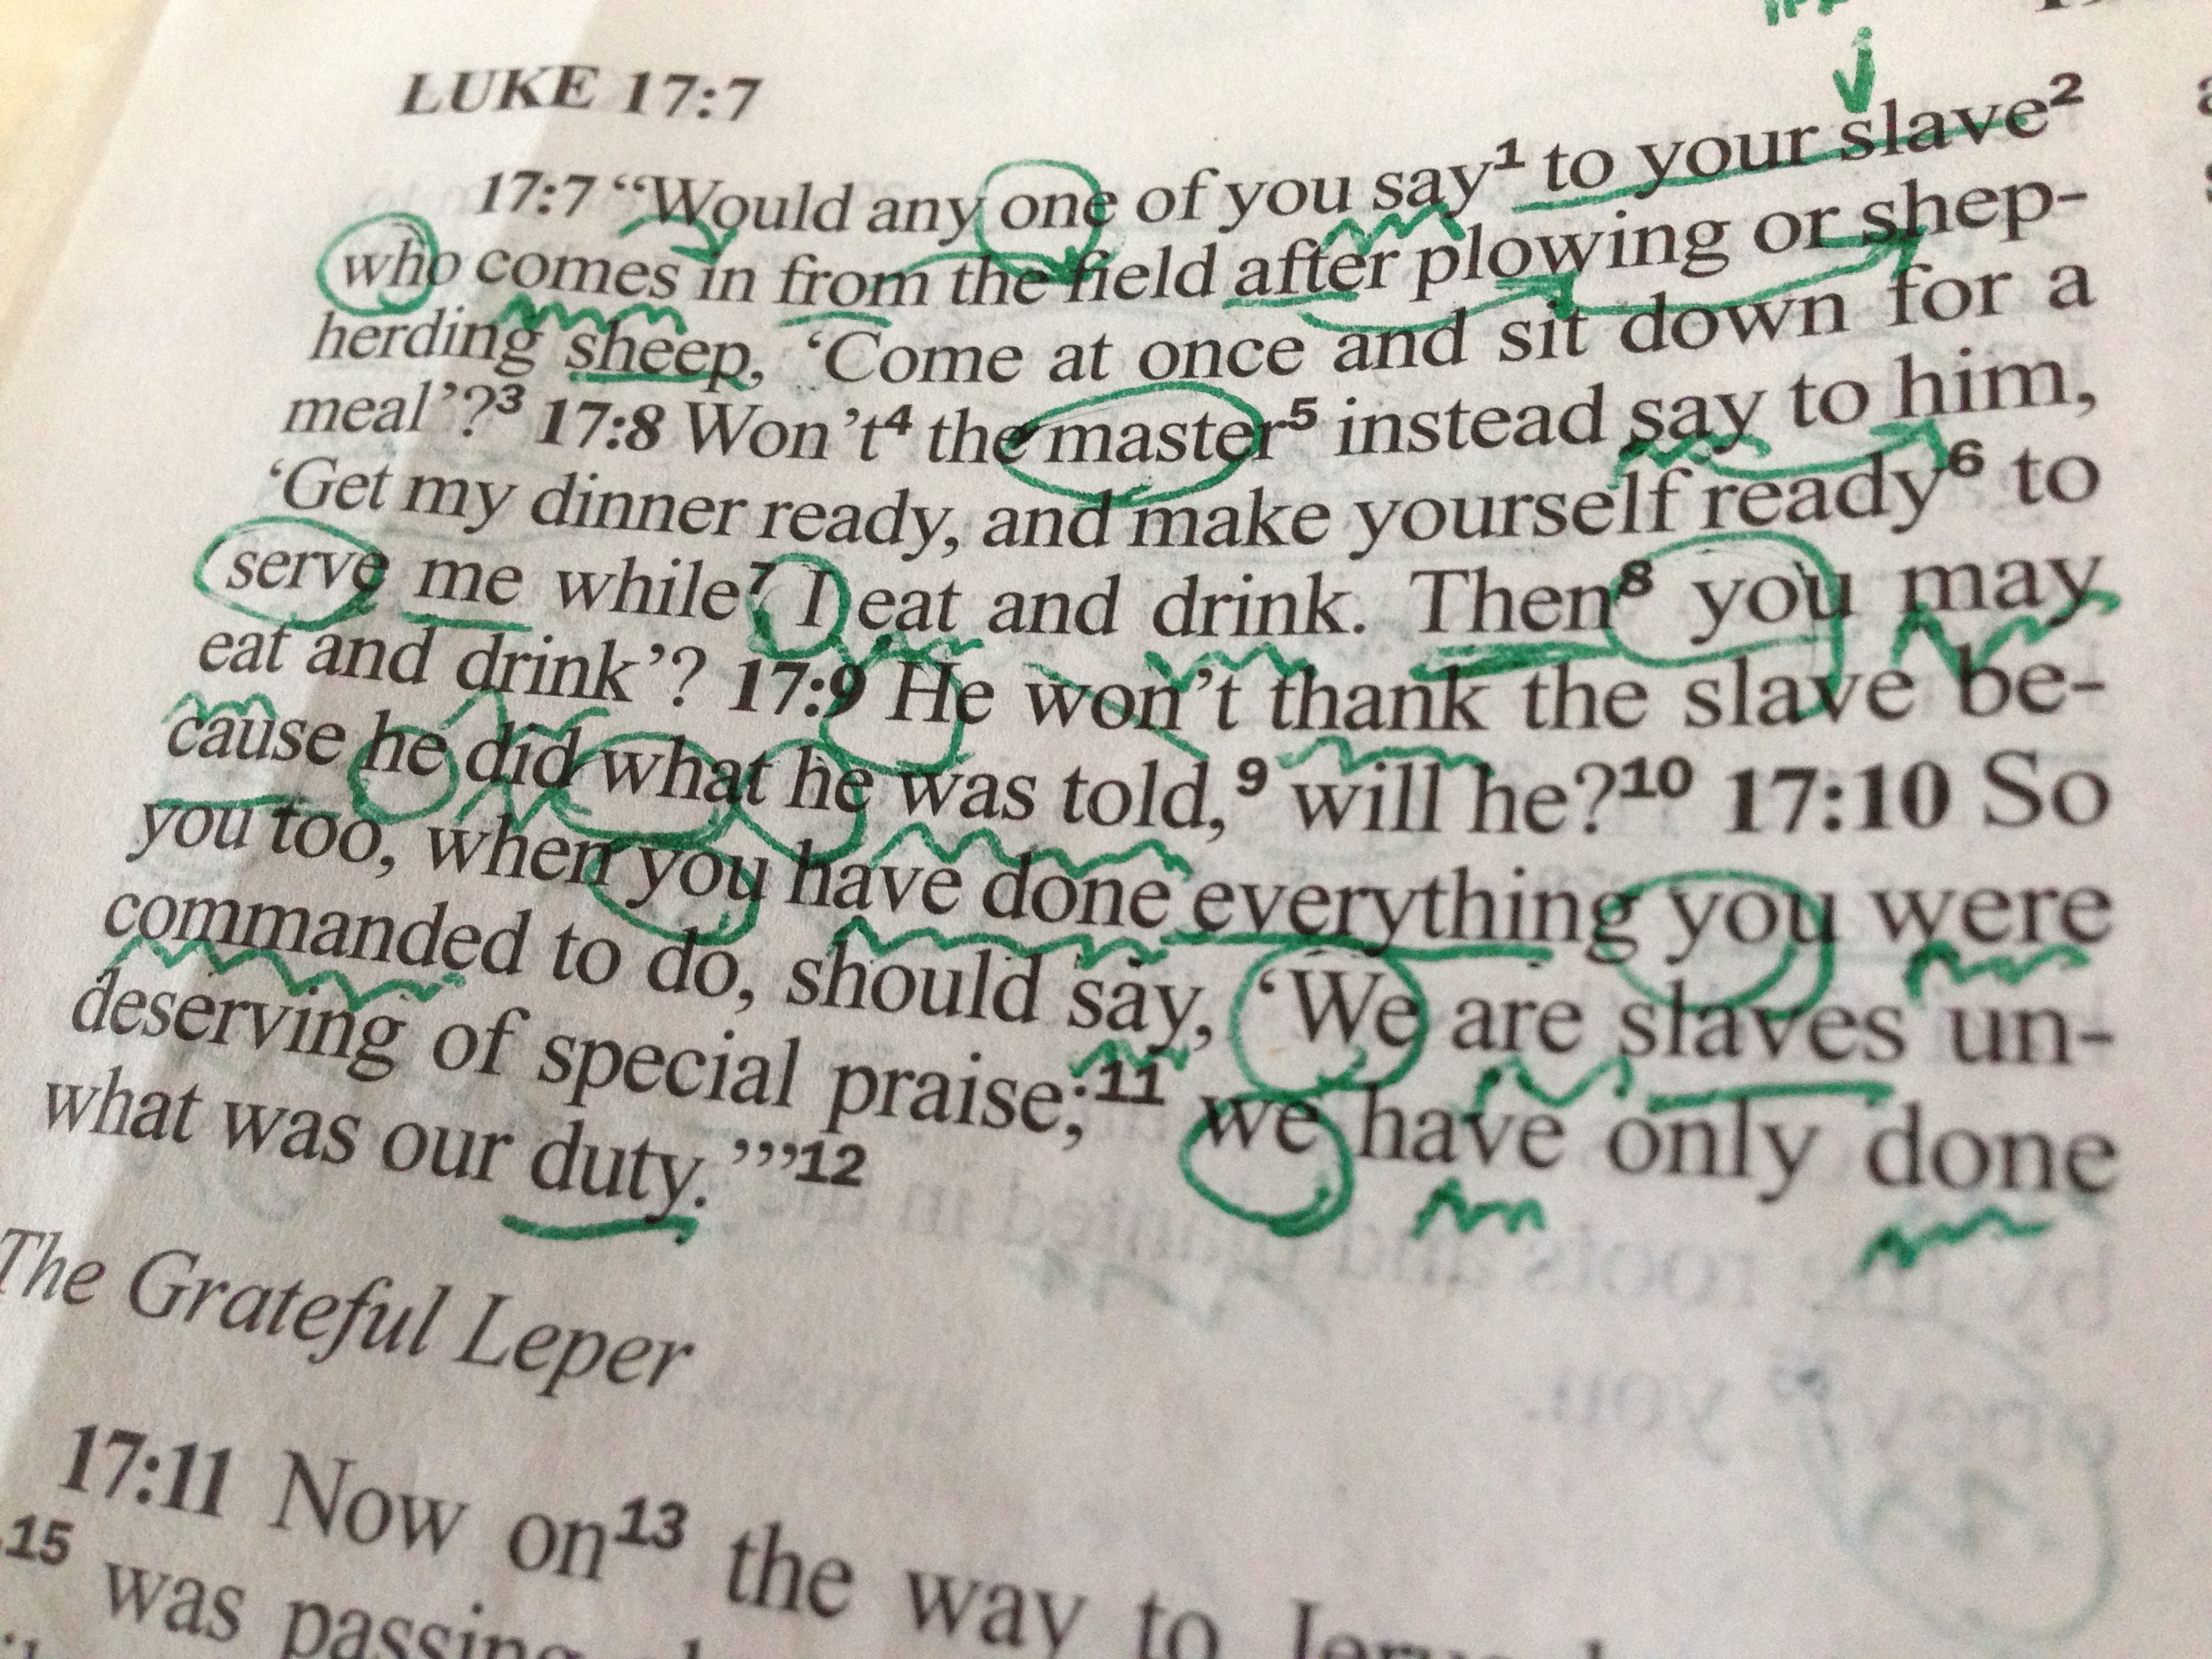 LUKE 17:7
17:7 “Would any one of you say1 to your slave2
who comes in from the field after plowing or shep-
herding sheep, ‘Come at once and sit down for a
meal’?3 17:8 Won’t4 the master5 instead say to him,
‘Get my dinner ready, and make yourself ready6 to
serve me while7 I eat and drink. Then8 you may
eat and drink’? 17:9 He won’t thank the slave be-
cause he did what he was told,9 will he?10 17:10 So
you too, when you have done everything you were
commanded to do, should say, ‘We are slaves un-
deserving of special praise;11 we have only done
what was our duty.’”12
The Grateful Leper
17:11 Now on13 the way to
15 was passing